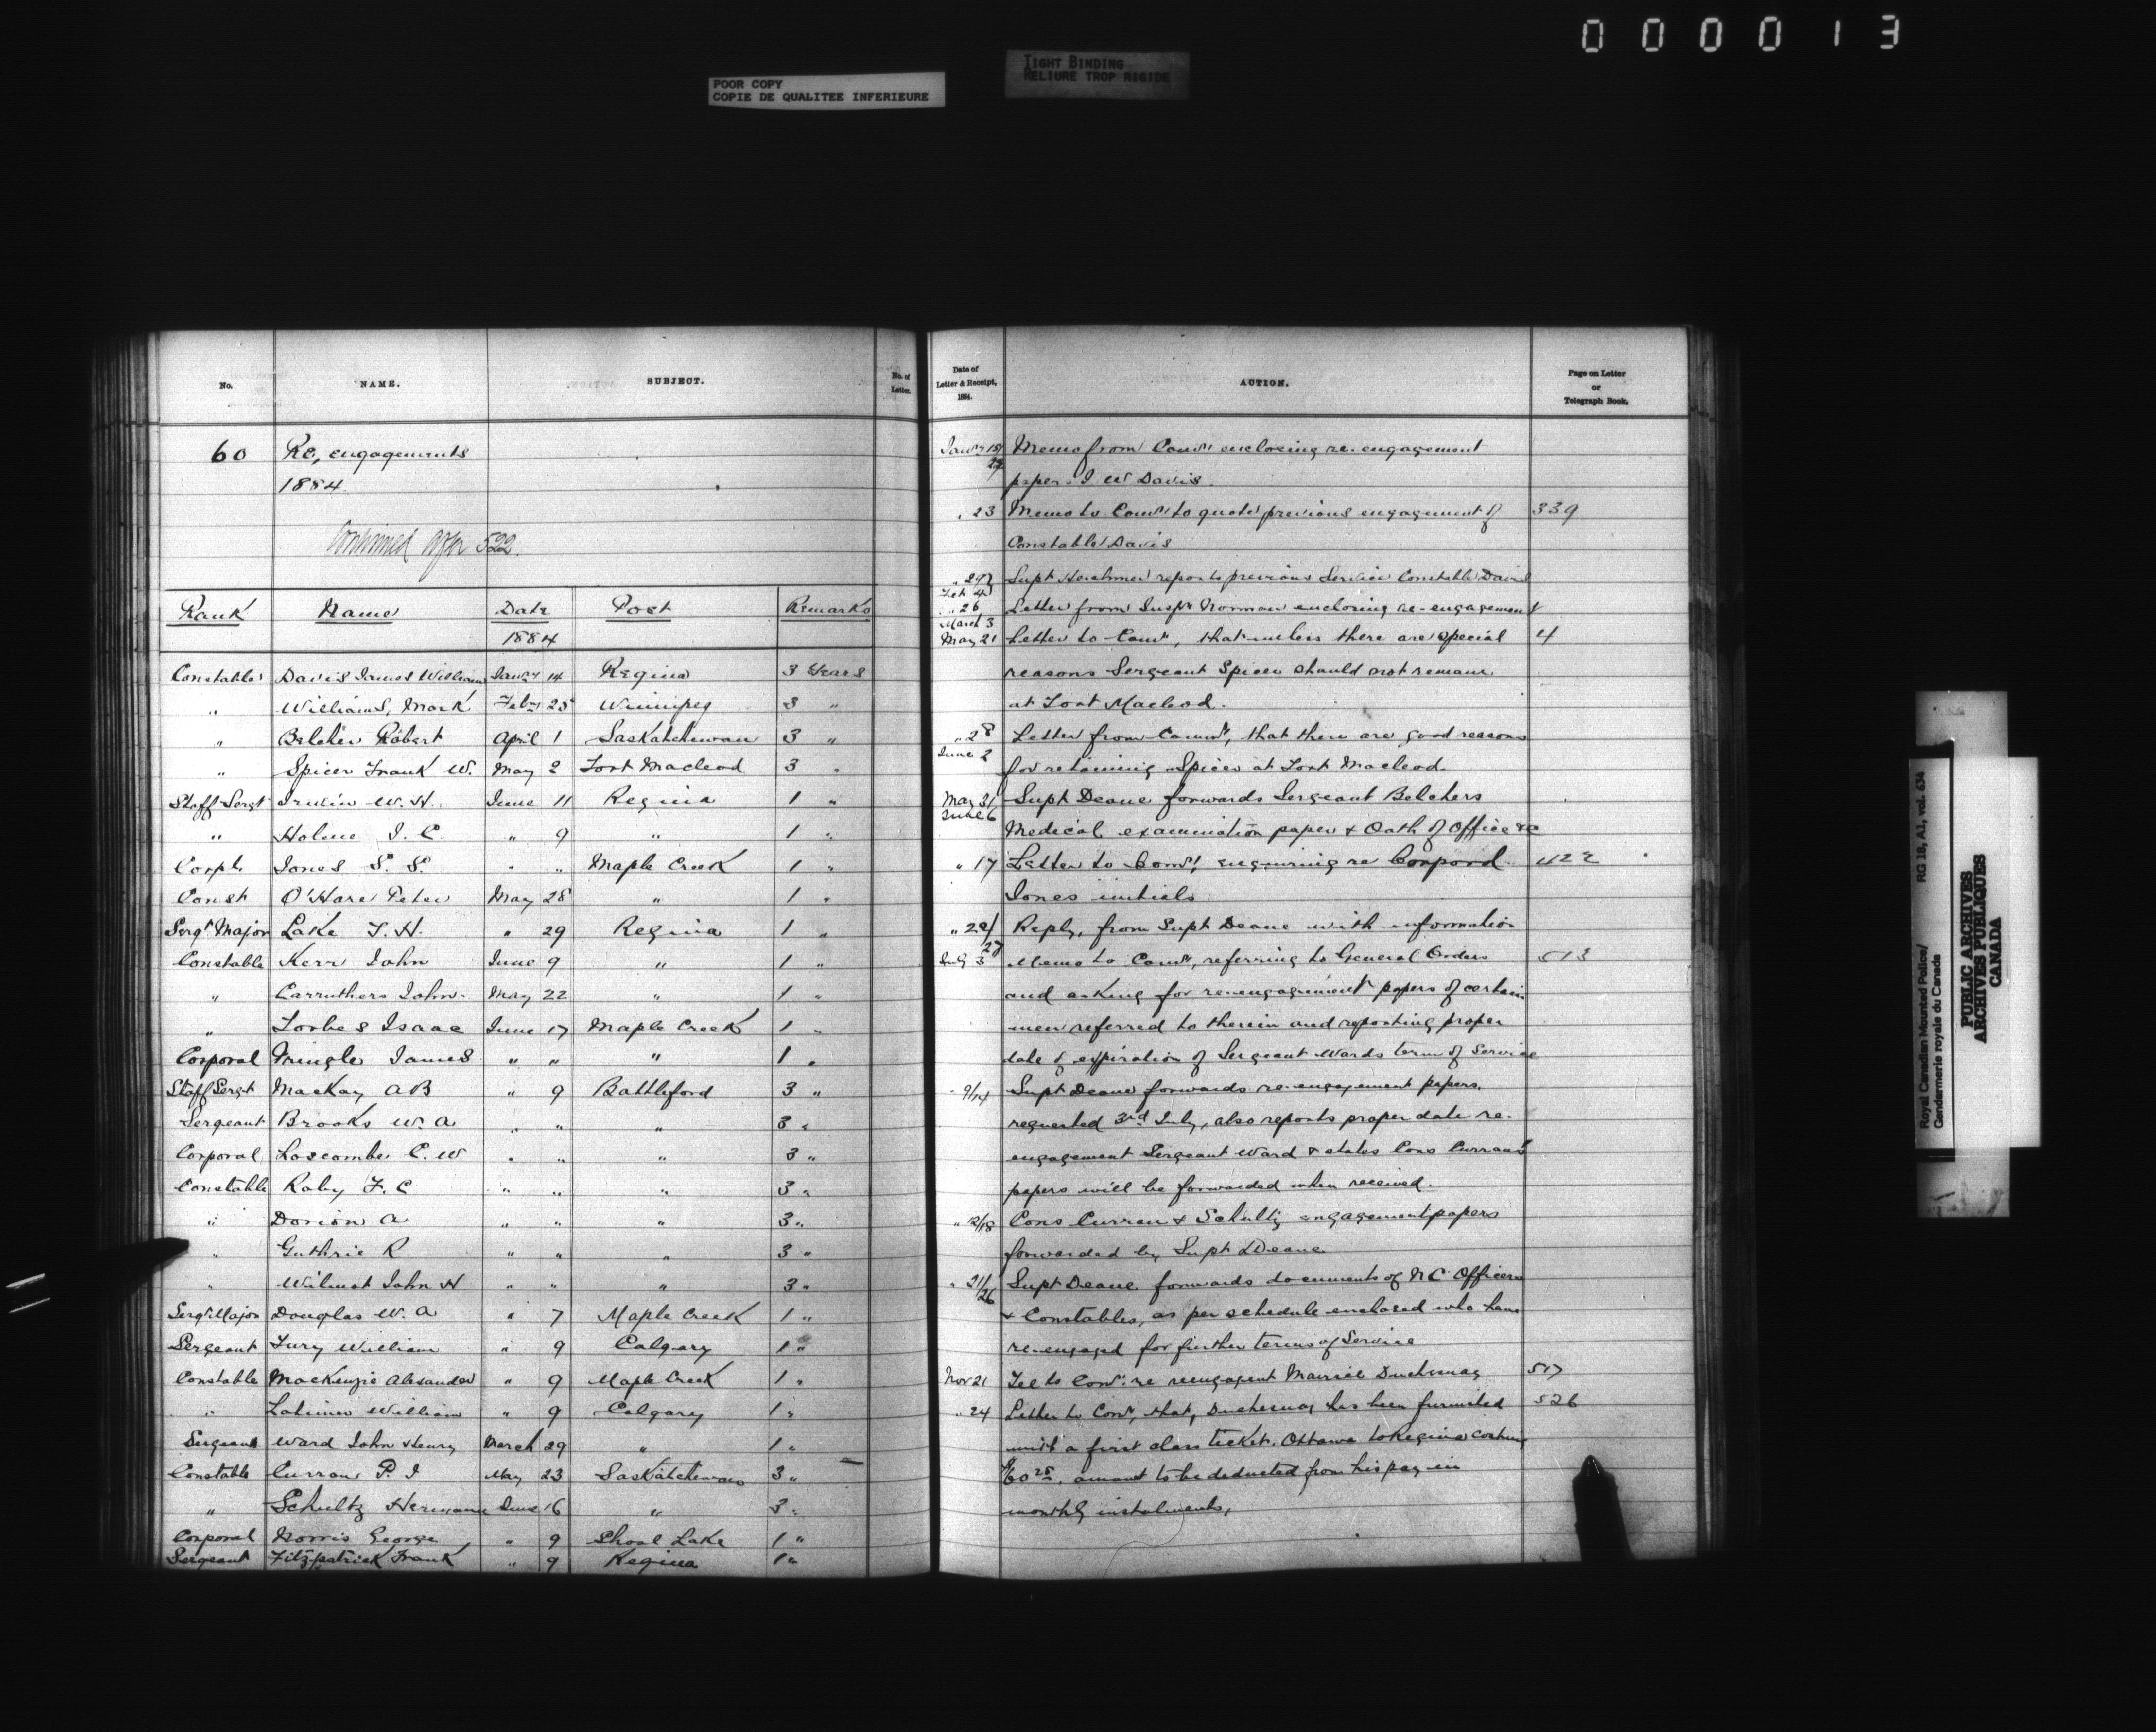 0 0 0 0 1 3
TIGHT BINDING
RELIURE TROP RIGIDE
POOR COPY
COPIE DE QUALITEE INFERIEURE
No. NAME. SUBJECT. No. of Letter.
60 Re, engagements
1884.
Continued after 522.
Rank Name Date Post Remarks
1884
Constable Davis James William Jany 14 Regina 3 Years
" Williams, Mark Feby 25 Winnipeg 3 "
" Belcher Robert April 1 Saskatchewan 3 "
" Spicer Frank W. May 2 Fort Macleod 3 "
Staff Sergt Irwin W. H. June 11 Regina 1 "
" Holme I. C. " 9 " 1 "
Corpl Jones S. S. " " Maple Creek 1 "
Const O'Hare Peter May 28 " 1 "
Sergt Major Lake F. H. " 29 Regina 1 "
Constable Kerr John June 9 " 1 "
" Carruthers John May 22 " 1 "
" Forbes Isaac June 17 Maple Creek 1 "
Corporal Pringle James " " " 1 "
Staff Sergt MacKay A B " 9 Battleford 3 "
Sergeant Brooks W. A " " " 3 "
Corporal Loscombe C. W " " " 3 "
Constable Raby F. C " " " 3 "
" Dorion A " " " 3 "
" Guthrie R " " " 3 "
" Wilmot John H " " " 3 "
Sergt Major Douglas W. A " 7 Maple Creek 1 "
Sergeant Fury William " 9 Calgary 1 "
Constable MacKenzie Alexander " 9 Maple Creek 1 "
" Latimer William " 9 Calgary 1 "
Sergeant Ward John Henry March 29 " 1 "
Constable Curran P. I May 23 Saskatchewan 3 "
" Schultz Hermann June 16 " 3 "
Corporal Norris George " 9 Shoal Lake 1 "
Sergeant Fitzpatrick Frank " 9 Regina 1 "
Date of Letter & Receipt, 1884. ACTION. Page on Letter or Telegraph Book.
Jany 18/22 Memo from Comr enclosing re-engagement
paper. I W Davis.
" 23 Memo to Comr to quote previous engagement of 339
Constable Davis
" 29/Feb 4 Supt Herchmer reports previous Service Constable Davis
" 26/March 3 Letter from Inspr Norman enclosing re-engagement
May 21 Letter to Comr, that unless there are special 4
reasons Sergeant Spicer should not remain
at Fort Macleod.
" 28/June 2 Letter from Comr, that there are good reasons
for retaining Spicer at Fort Macleod.
May 31/June 6 Supt Deane forwards Sergeant Belchers
Medical examination paper & Oath of Office &c
" 17 Letter to Comr, enquiring re Corporal 422
Jones initials
" 22/27 Reply, from Supt Deane with information
July 3 Memo to Comr, referring to General Orders 513
and asking for re-engagement papers of certain
men referred to therein and reporting proper
date of expiration of Sergeant Wards term of Service
" 9/14 Supt Deane forwards re-engagement papers.
requested 3rd July, also reports proper date re-
engagement Sergeant Ward & states Cons Currans
papers will be forwarded when received.
" 12/18 Cons Curran & Schultz engagement papers
forwarded by Supt Deane
" 21/26 Supt Deane forwards documents of N C Officers
& Constables, as per schedule enclosed who have
re-engaged for further terms of Service
Nov 21 Tel to Comr. re reengagent Duchesnay 517
" 24 Letter to Comr, that, Duchesnay has been furnished 526
with a first class ticket. Ottawa to Regina costing
$60 25, amount to be deducted from his pay in
monthly instalments,
Royal Canadian Mounted Police/ RG 18, A1, vol. 634
Gendarmerie royale du Canada
PUBLIC ARCHIVES
ARCHIVES PUBLIQUES
CANADA